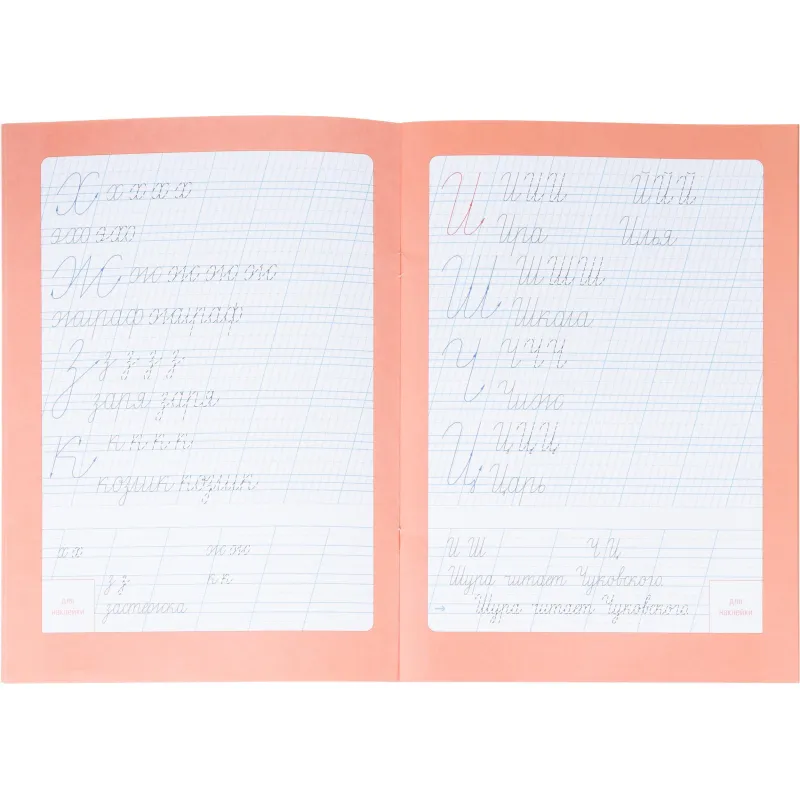 Х х х х х
эхо эхо
Ж ж ж ж ж
жираф жираф
З з з з з
заря заря
К к к к к
козлик козлик
х х ж ж
з з к к
застёжка
для
наклейки
И И И И Й Й Й
Ира Илья
Ш Ш Ш Ш
Школа
Ч Ч Ч Ч
Чиж
Ц Ц Ц Ц
Царь
И Ш Ч Ц
Шура читает Чуковского
Шура читает Чуковского
для
наклейки